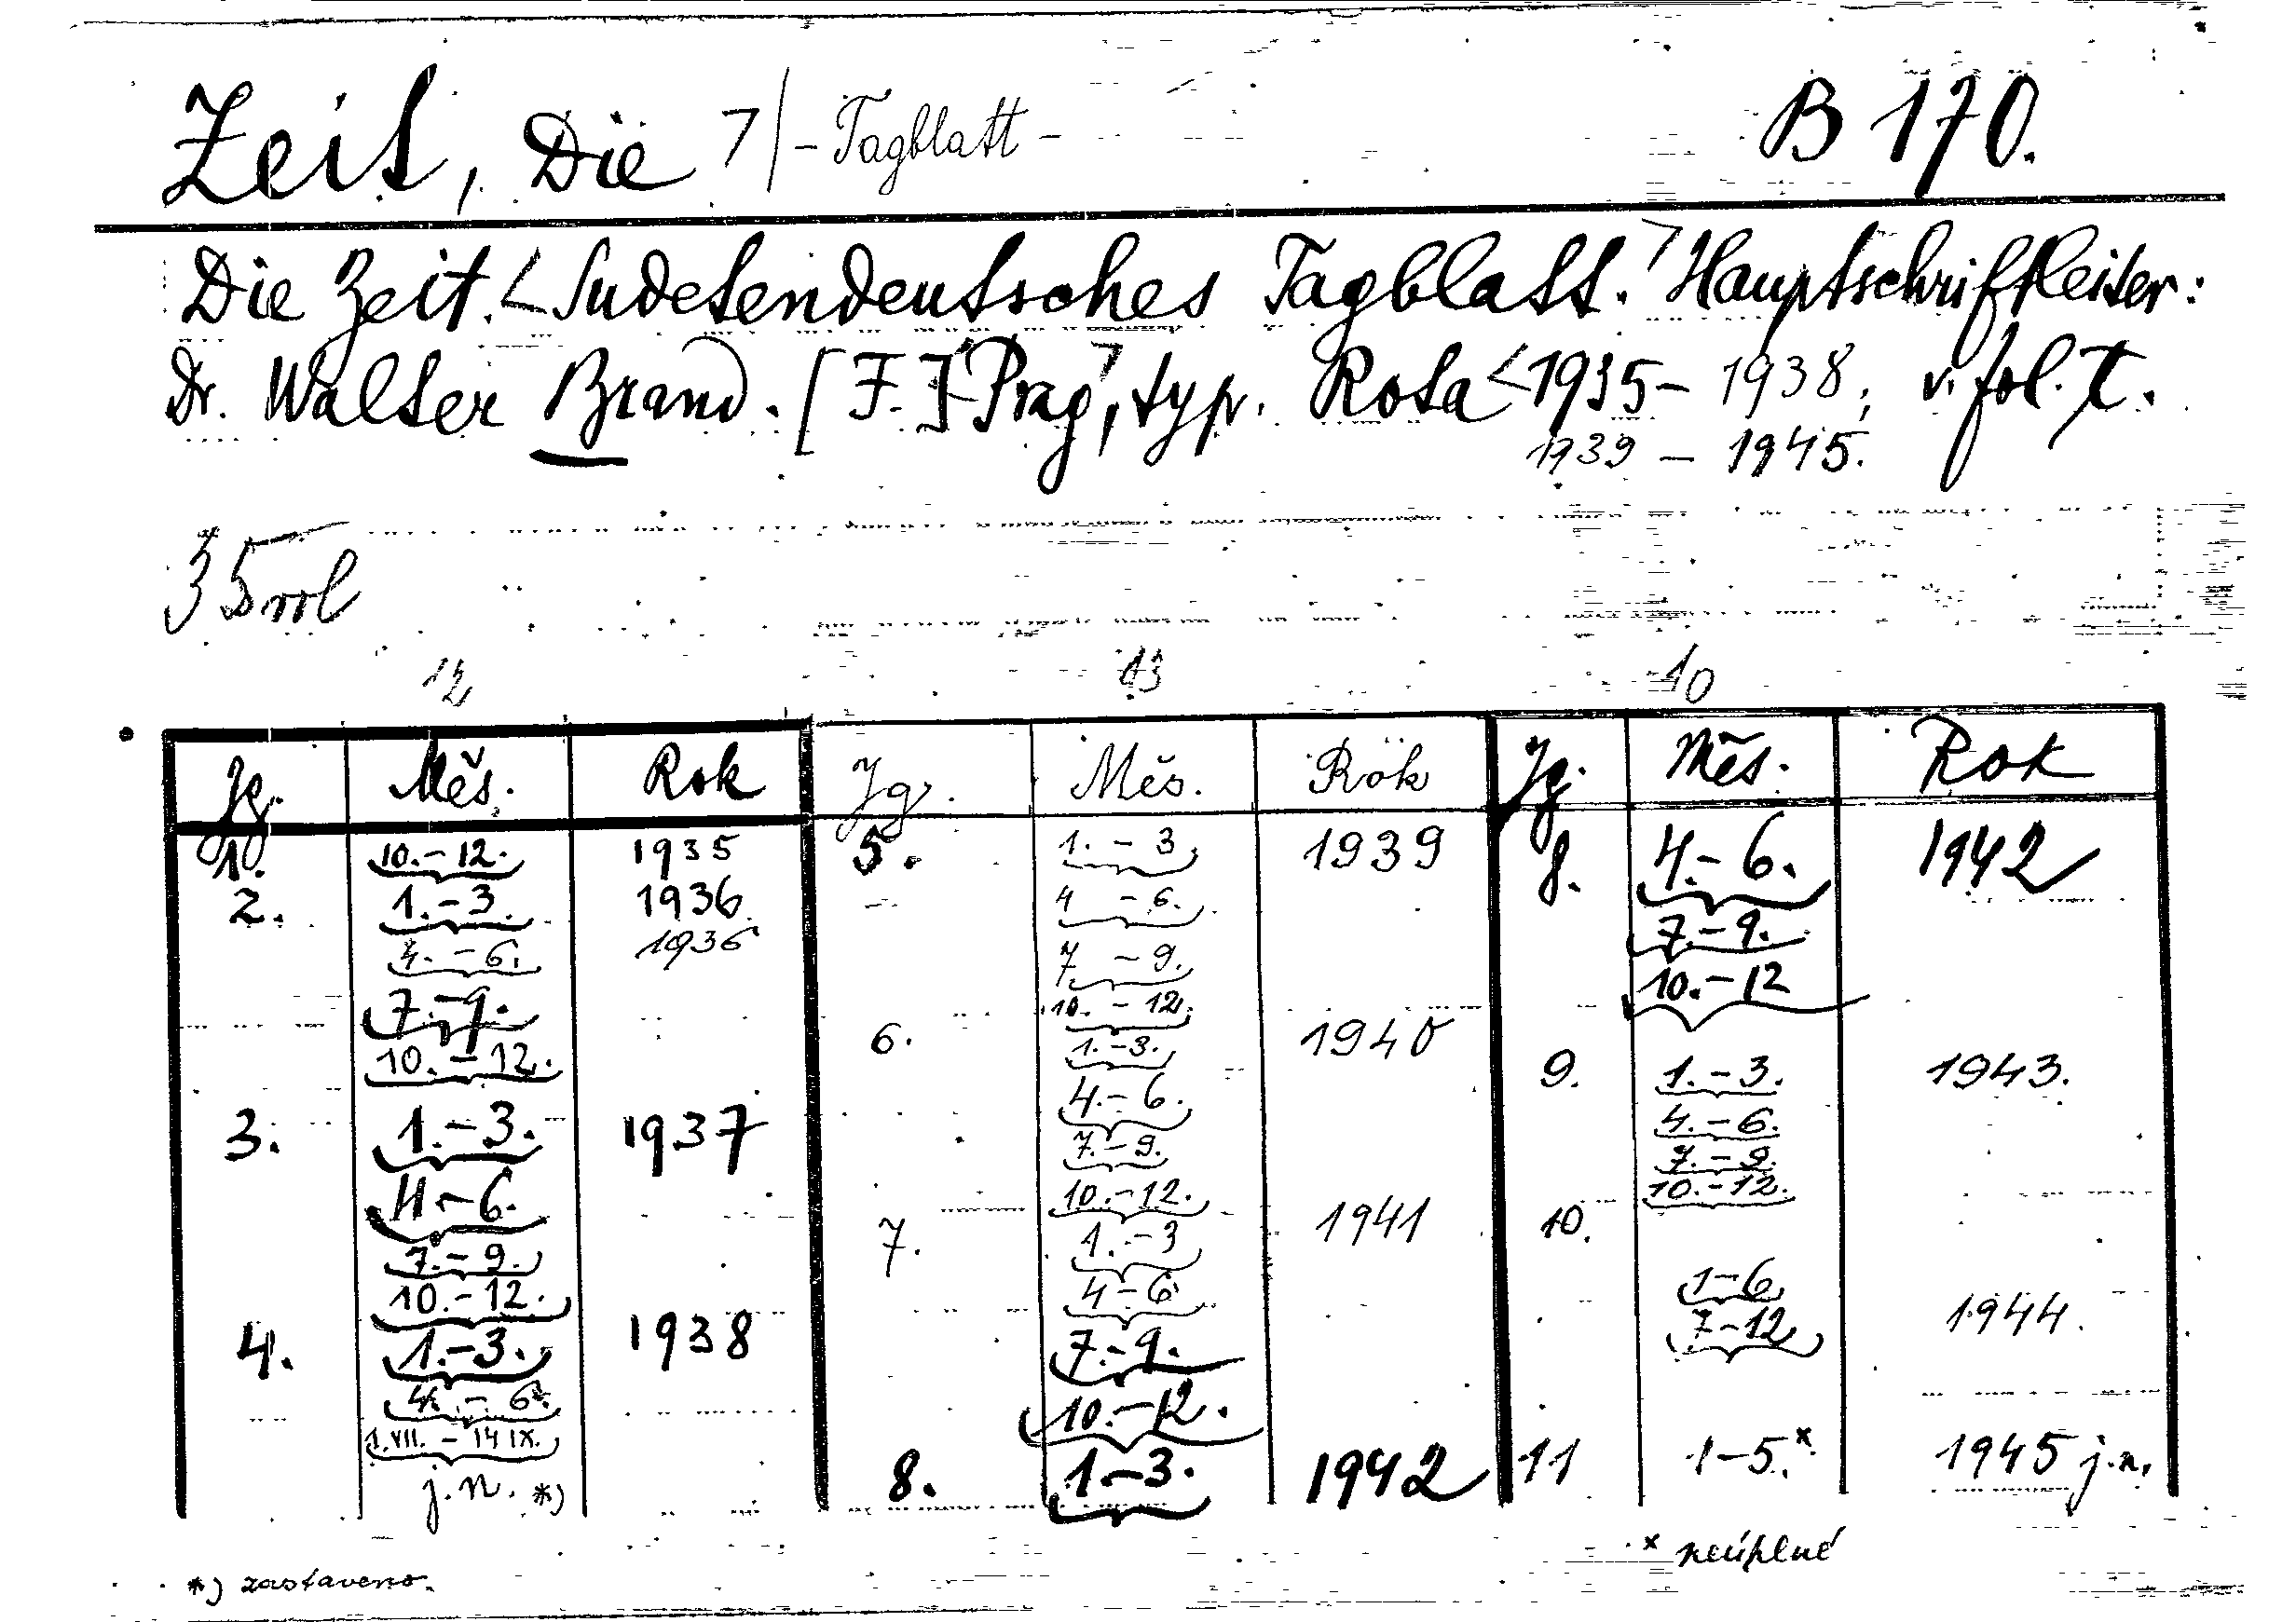 Zeit, Die 7/ - Tagblatt - B 170.
Die Zeit. < Sudetendeutsches Tagblatt. > Hauptschriftleiter:
Dr. Walter Brand. [F.] Prag, typ. Rota < 1935 - 1938, v. fol.
1939 - 1945.
35
12 13 10
Jg. Měs. Rok Jg. Měs. Rok Jg. Měs. Rok
1. 10. - 12. 1935 5. 1. - 3. 1939 8. 4. - 6. 1942
2. 1. - 3. 1936 4 - 6. 7. - 9.
4. - 6. 1936 7. - 9. 10. - 12
7. - 9. 10. - 12.
10. - 12. 6. 1. - 3. 1940 9. 1. - 3. 1943.
3. 1. - 3. 1937 4. - 6. 4. - 6.
4 - 6. 7. - 9. 7. - 9.
7. - 9. 10. - 12. 10. - 12.
10. - 12. 7. 1. - 3 1941 10. 1 - 6
4. 1. - 3. 1938 4 - 6 7 - 12 1944.
4. - 6. 7. - 9.
1. VII. - 14 IX. 10. - 12. 11 1 - 5.* 1945 j.n.
j. n. *) 8. 1. - 3. 1942
* neúplné
*) zastaveno.